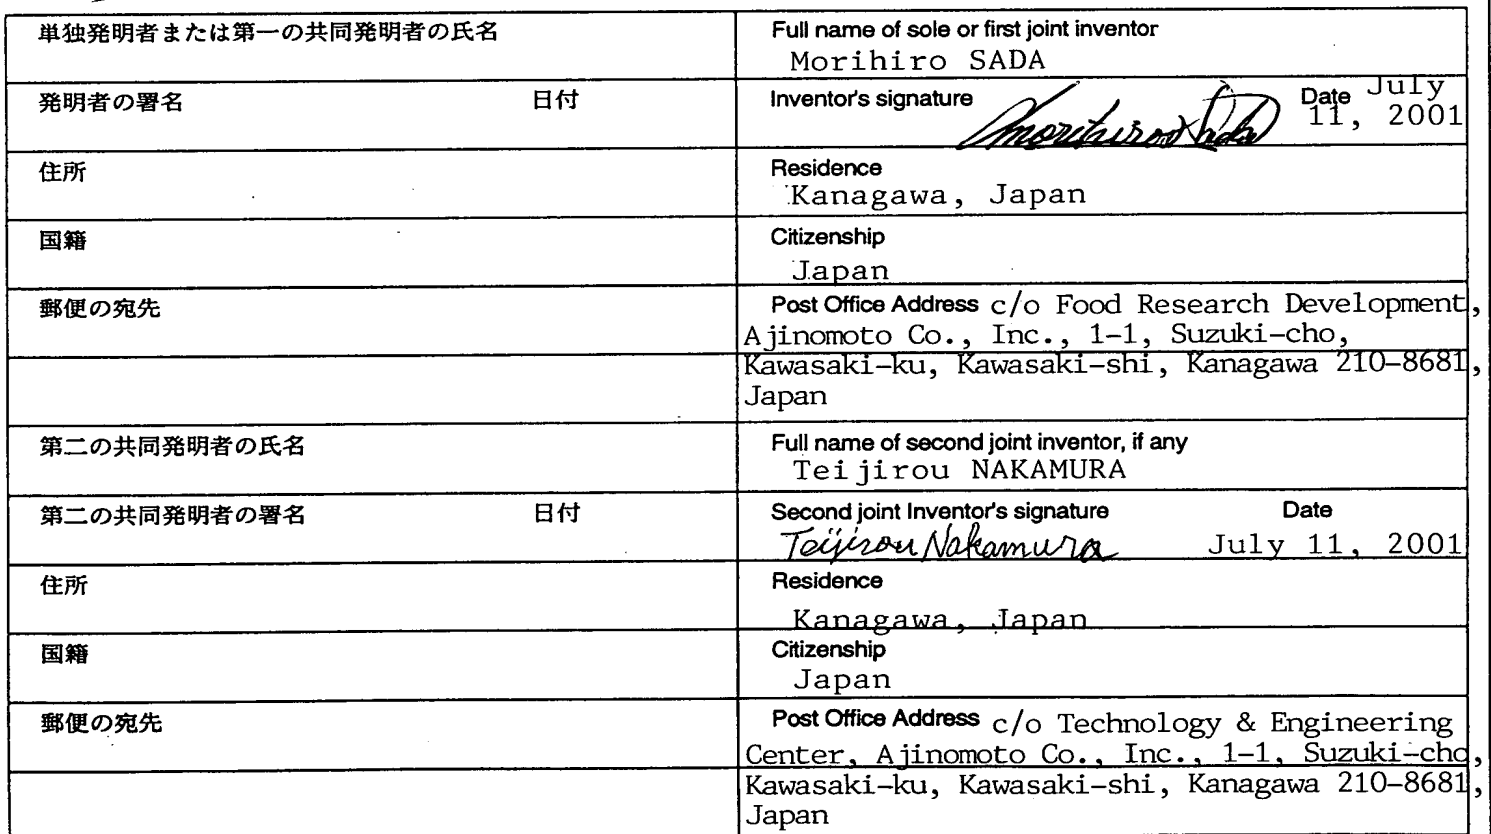 単独発明者または第一の共同発明者の氏名
Full name of sole or first joint inventor
Morihiro SADA
発明者の署名 日付
Inventor's signature Morihiro Sada Date July
11, 2001
住所
Residence
Kanagawa, Japan
国籍
Citizenship
Japan
郵便の宛先
Post Office Address c/o Food Research Development,
Ajinomoto Co., Inc., 1-1, Suzuki-cho,
Kawasaki-ku, Kawasaki-shi, Kanagawa 210-8681,
Japan
第二の共同発明者の氏名
Full name of second joint inventor, if any
Teijirou NAKAMURA
第二の共同発明者の署名 日付
Second joint Inventor's signature Date
Teijirou Nakamura July 11, 2001
住所
Residence
Kanagawa, Japan
国籍
Citizenship
Japan
郵便の宛先
Post Office Address c/o Technology & Engineering
Center, Ajinomoto Co., Inc., 1-1, Suzuki-cho,
Kawasaki-ku, Kawasaki-shi, Kanagawa 210-8681,
Japan